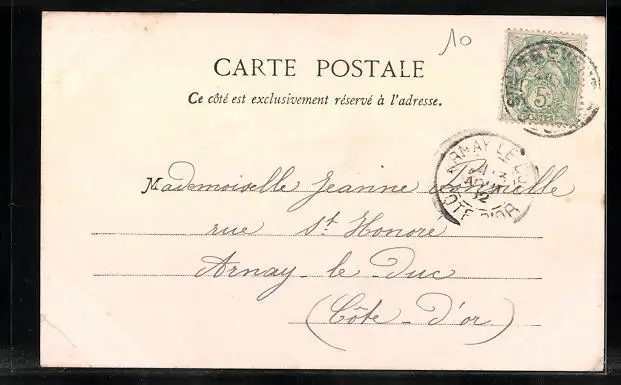 10
CARTE POSTALE
Ce côté est exclusivement réservé à l'adresse.
5
ARNAY LE
CÔTE D'OR
Mademoiselle Jeanne
rue St Honore
Arnay-le-Duc
(Côte-d'or)